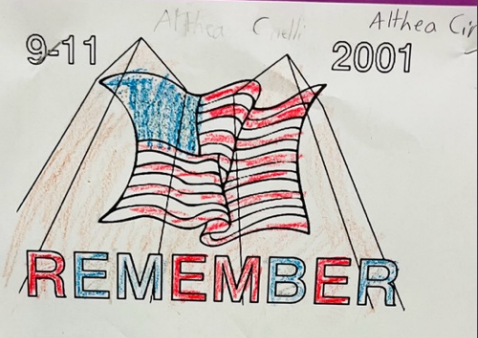 Althea Cinelli Althea Cir
9-11 2001
REMEMBER